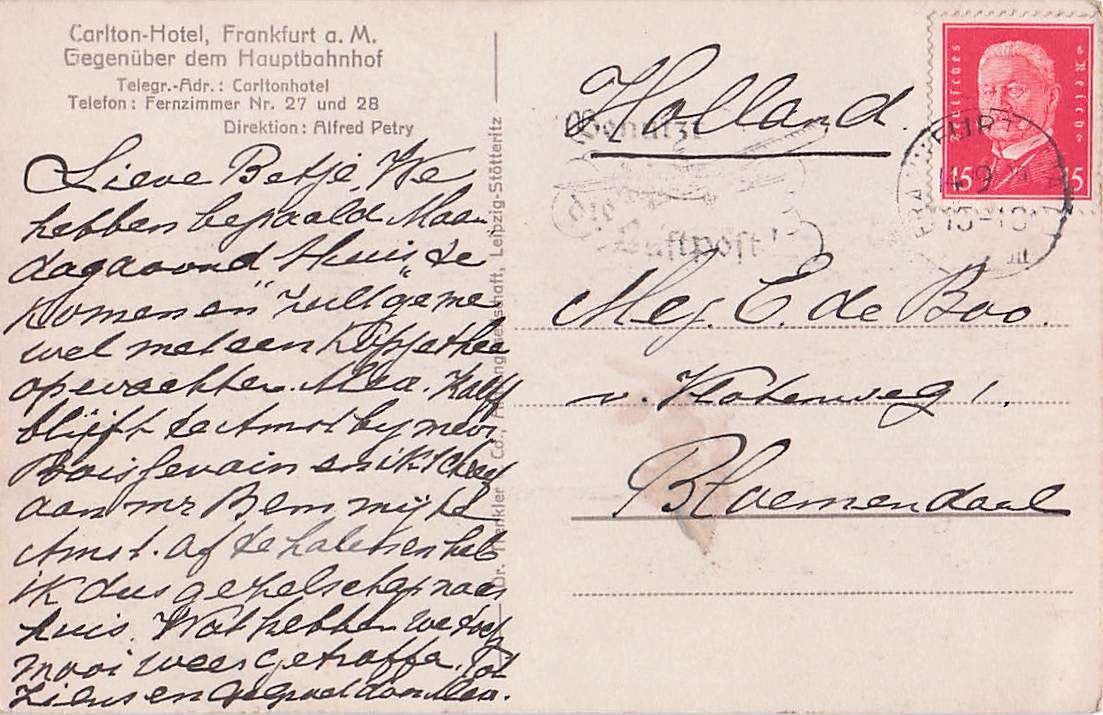 Carlton-Hotel, Frankfurt a. M.
Gegenüber dem Hauptbahnhof
Telegr.-Adr.: Carltonhotel
Telefon: Fernzimmer Nr. 27 und 28
Direktion: Alfred Petry
Lieve Betje, We
hebben bepaald Maan
dagavond thuis te
komen en zult ge me
wel met een kopje thee
opwachten. Mea. Kalff
blijft te Amst by mevr
Boissevain en ik schreef
aan mr Bem mij te
Amst. af te halen en heb
ik dus gezelschap naar
huis. Wat hebben we toch
mooi weer getroffen. Tot
Ziens en
Dr. Co., Leipzig-Stötteritz
Holland.
Benutzt
die
Luftpost!
Deutsches Reich
15 15
Mej. E. de Boo.
v. Hotenweg 1.
Bloemendaal